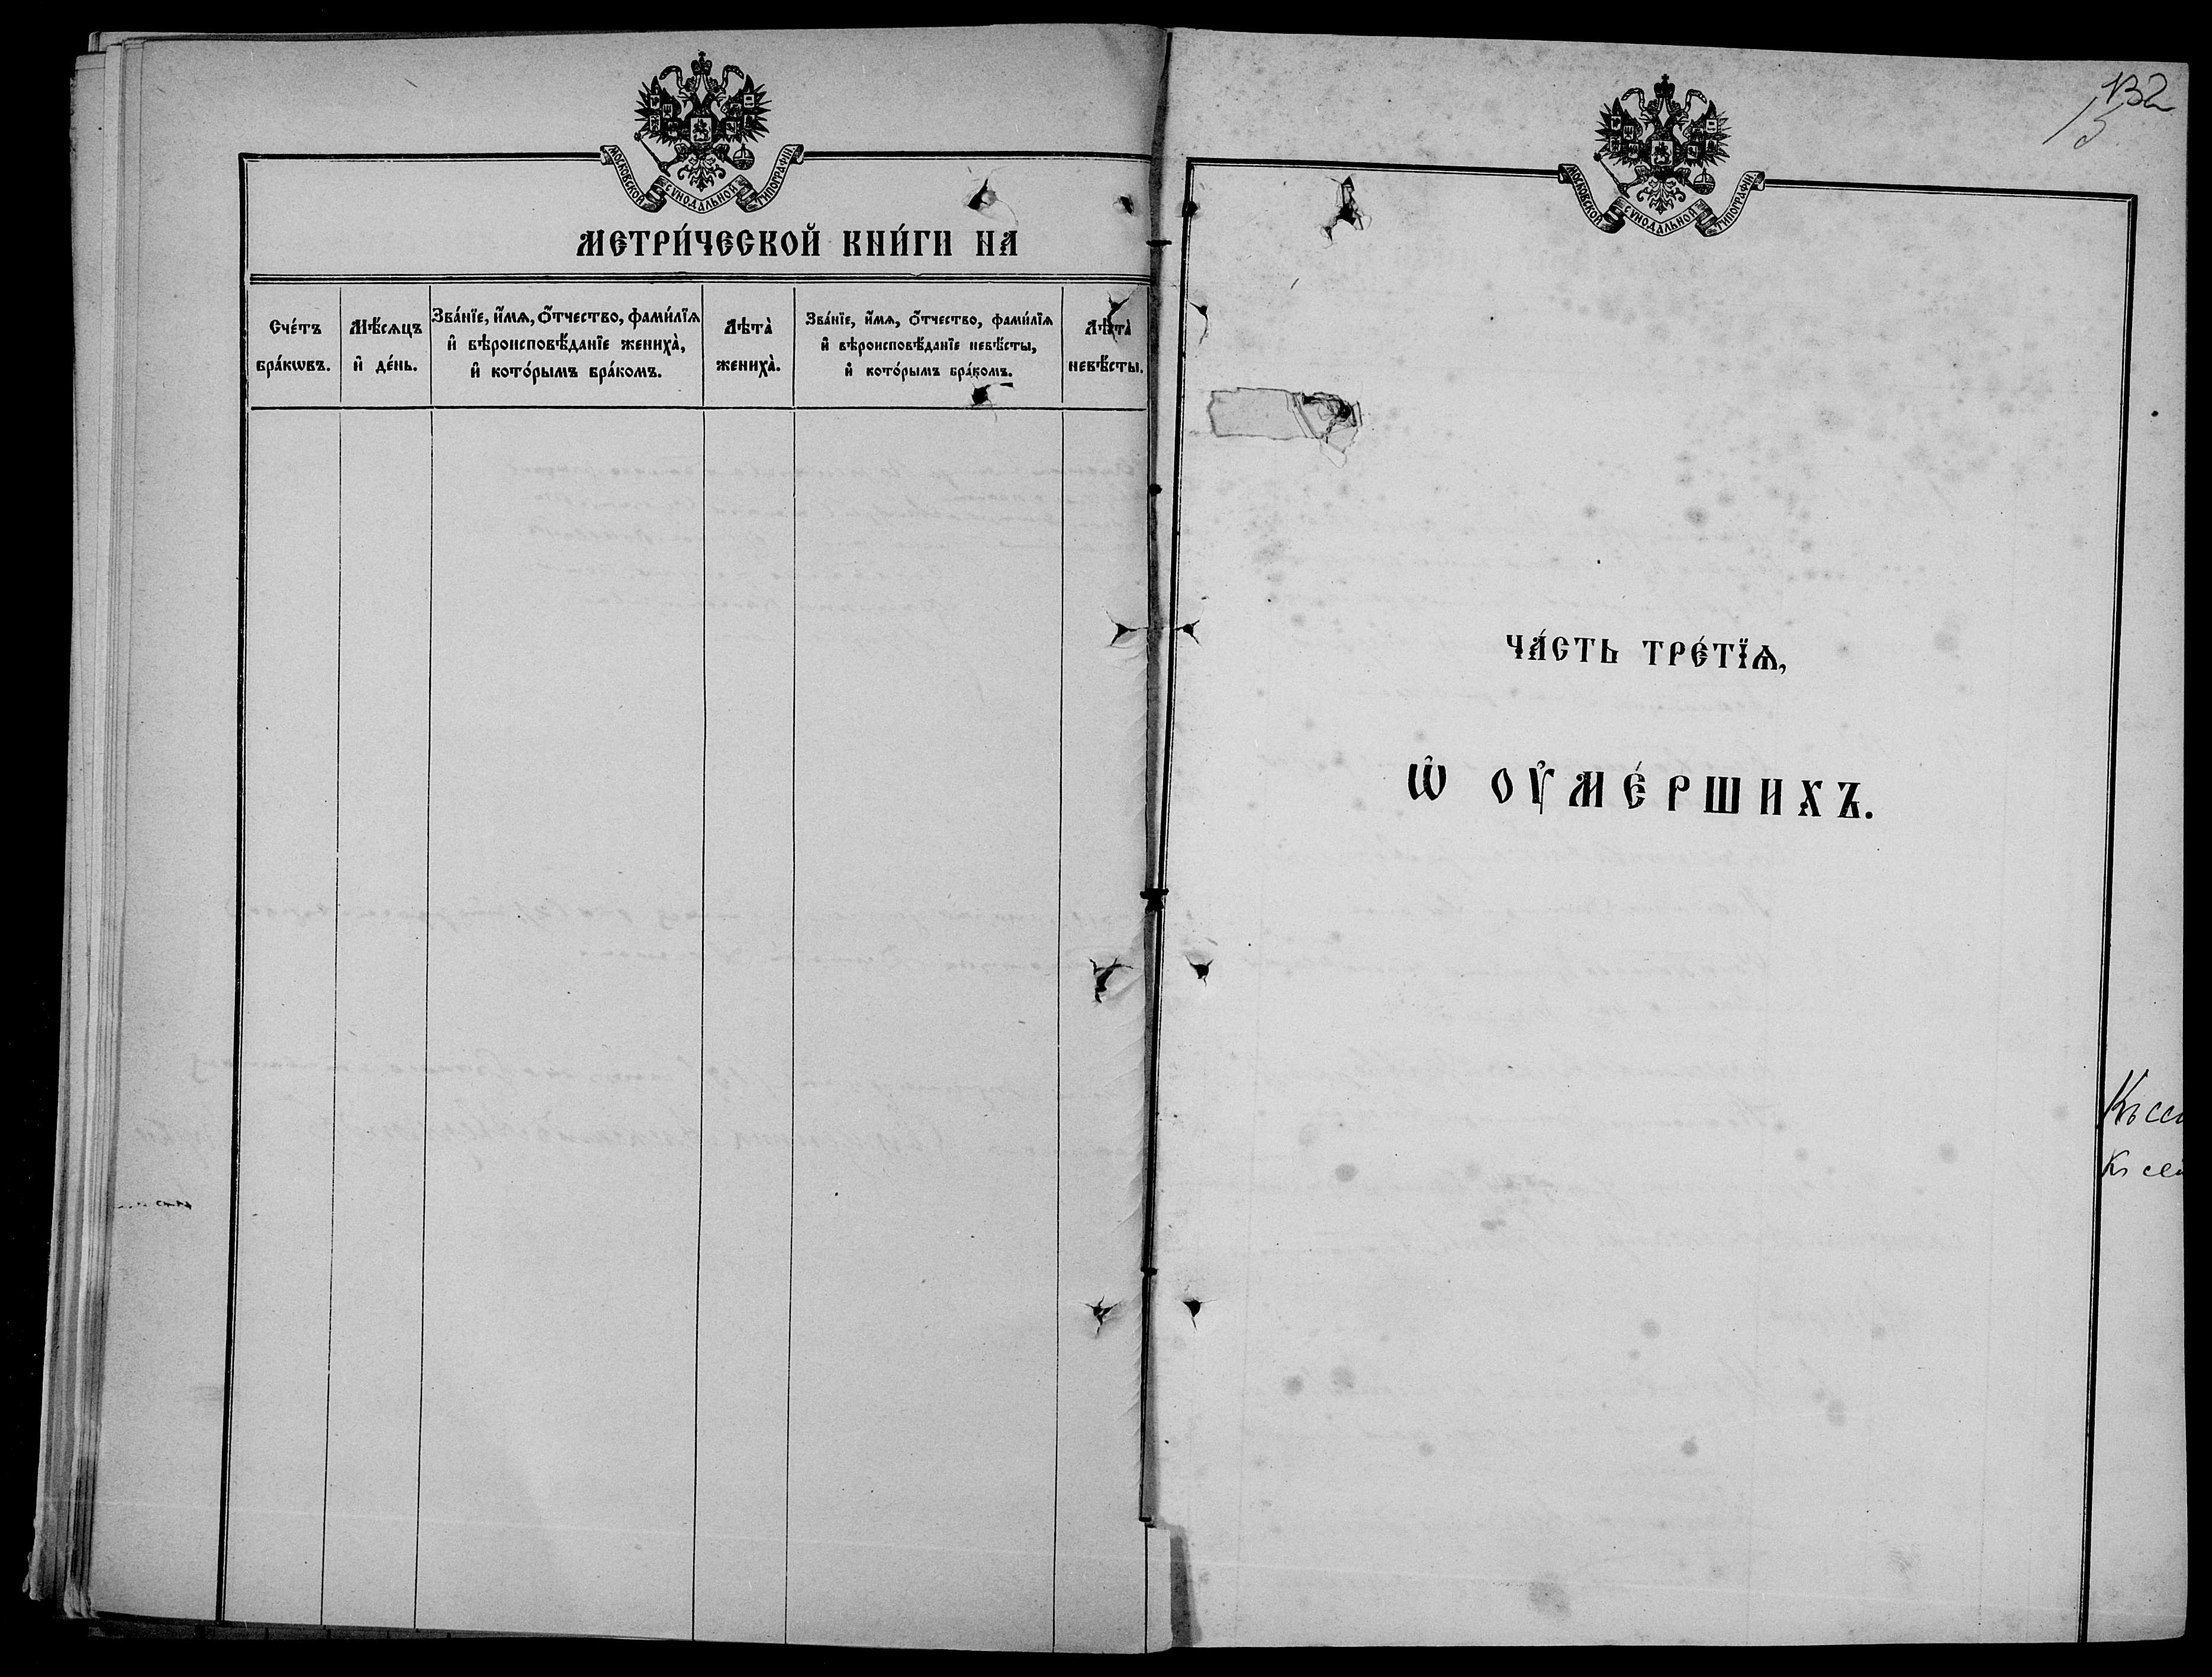 МОСКОВСКОЙ СѴНОДАЛЬНОЙ ТИПОГРАФІИ.
МЕТРИ́ЧЕСКОЙ КНИ́ГИ НА
Сче́тъ бра́кѡвъ.
Мѣ́сѧцъ и҆ де́нь.
Зва́нїе, и҆́мѧ, ѻ҆́тчество, фами́лїѧ
и҆ вѣроисповѣ́данїе женихà,
и҆ кото́рымъ бра́комъ.
Лѣтà женихà.
Зва́нїе, и҆́мѧ, ѻ҆́тчество, фами́лїѧ
и҆ вѣроисповѣ́данїе невѣ́сты,
и҆ кото́рымъ бра́комъ.
Лѣтà невѣ́сты.
132
МОСКОВСКОЙ СѴНОДАЛЬНОЙ ТИПОГРАФІИ.
ЧА́СТЬ ТРЕ́ТЇѦ,
Ѡ҆ ОУ҆МЕ́РШИХЪ.